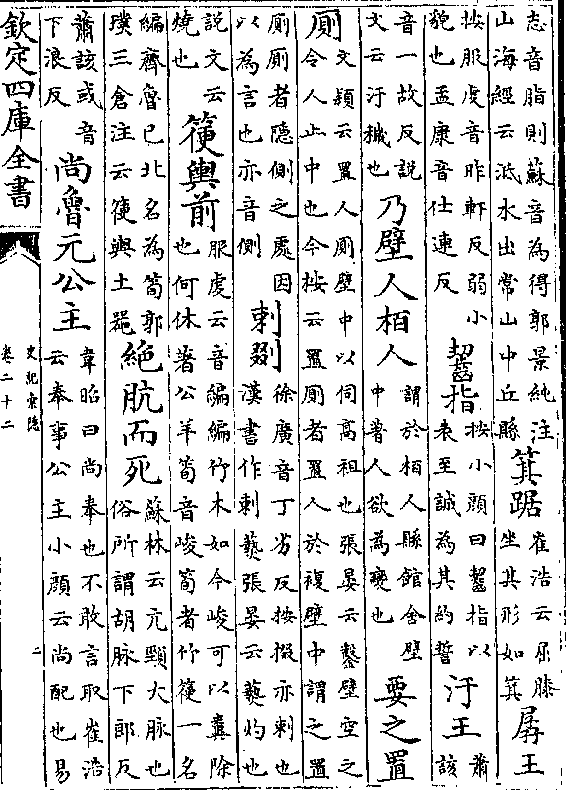 志音脂則蘇音為得郭景純注
山海經云泜水出常山中丘縣
箕踞
崔浩云屈膝
坐其形如箕
孱王
按服䖍音昨軒反弱小
貌也孟康音仕連反
齧指
按小顔曰齧指以
表至誠為其約誓
汙王
蕭
該
音一故反說
文云汙穢也
乃壁人栢人
謂於栢人縣館舍壁
中著人欲為變也
要之置
厠
文頴云置人厠壁中以伺高祖也張晏云鑿壁空之
令人止中也今按云置厠者置人於複壁中謂之置
厠厠者隠側之處因
以為言也亦音側
刺剟
徐廣音丁劣反按掇亦刺也
漢書作刺爇張晏云爇灼也
說文云
燒也
箯輿前
服䖍云音編編竹木如今峻可以糞除
也何休著公羊筍音峻筍者竹箯一名
編齊魯已北名為筍郭
璞三倉注云箯輿土器
絶肮而死
蘇林云亢頸大脉也
俗所謂胡脉下郎反
蕭該或音
下浪反
尚魯元公主
韋昭曰尚奉也不敢言取崔浩
云奉事公主小顔云尚配也易
欽定四庫全書
史記索隱
卷二十二
二